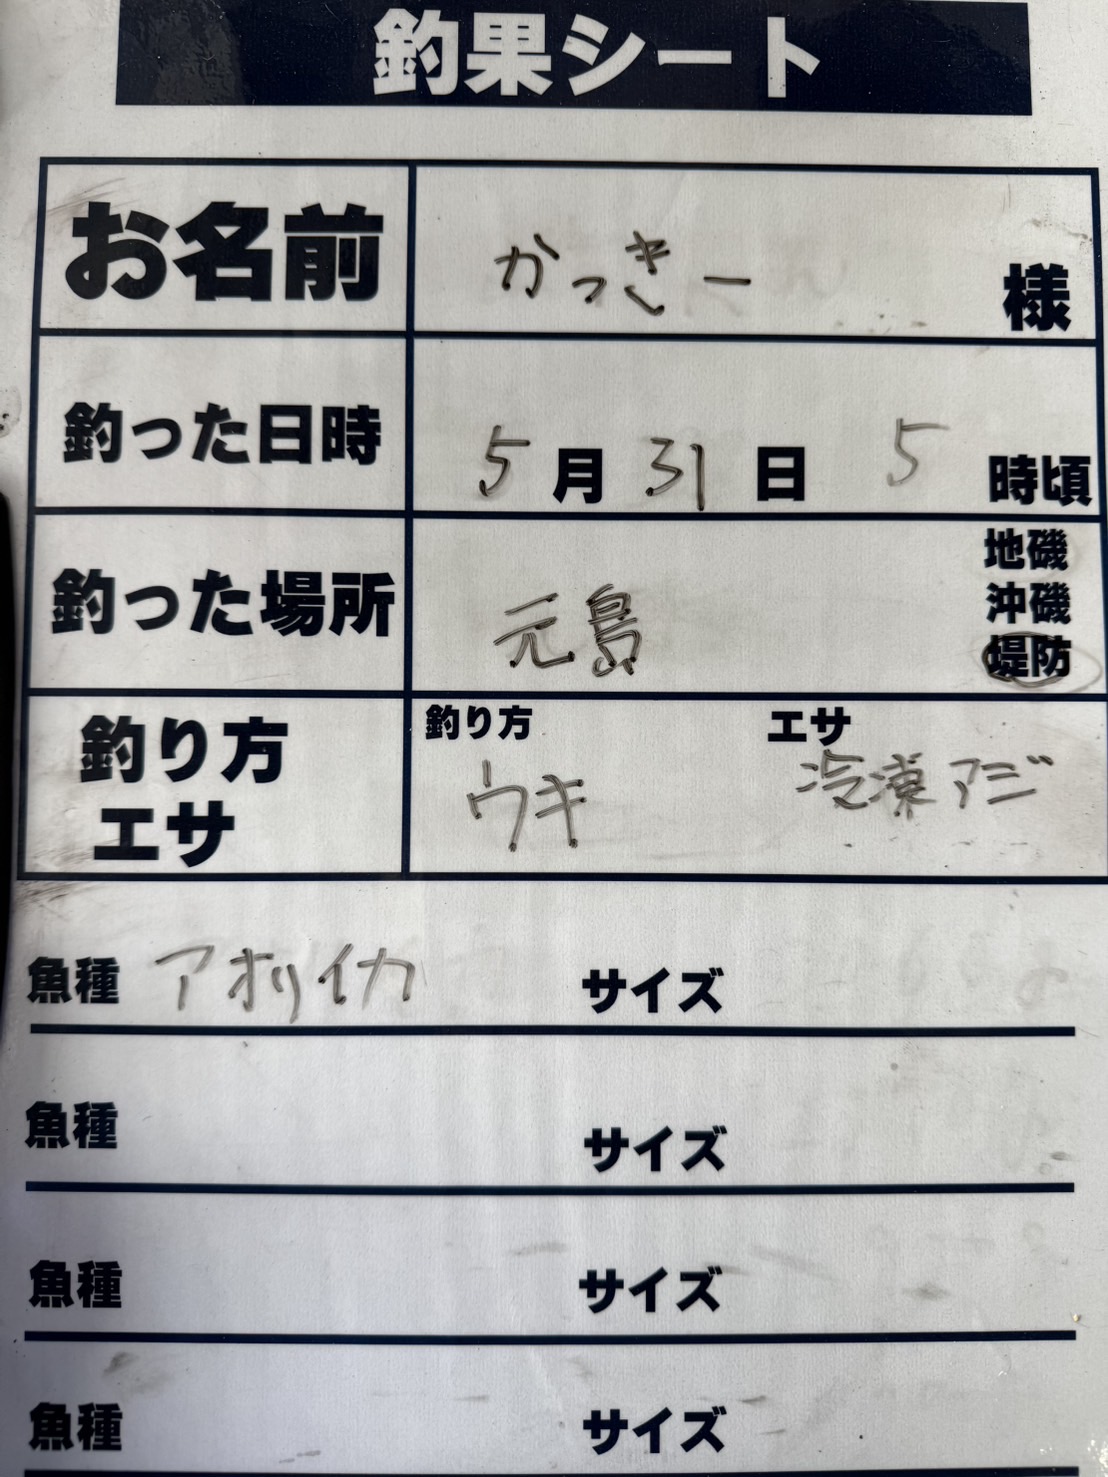 釣果シート
お名前 かっきー 様
釣った日時 5月31日 5時頃
釣った場所 元島 地磯
沖磯
堤防
釣り方 エサ
釣り方 ウキ エサ 冷凍アジ
魚種 アオリイカ サイズ
魚種 サイズ
魚種 サイズ
魚種 サイズ